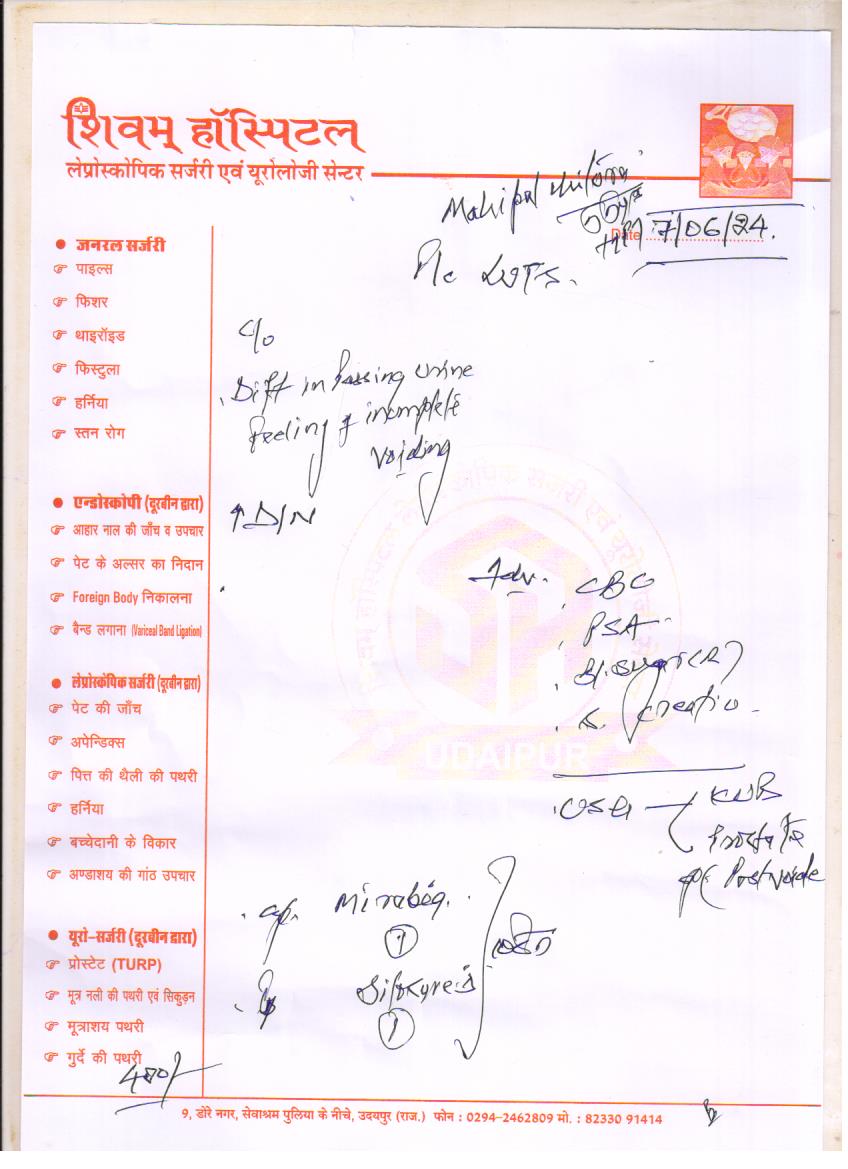 शिवम् हॉस्पिटल
लेप्रोस्कोपिक सर्जरी एवं यूरोलोजी सेन्टर
Mahipal
Date 7/06/24.
P/c LUTS.
• जनरल सर्जरी
☞ पाइल्स
☞ फिशर
☞ थाइरॉइड
☞ फिस्टुला
☞ हर्निया
☞ स्तन रोग
c/o
Diff in Passing urine
feeling of incomplete
voiding
↑ D/N
• एन्डोस्कोपी (दूरबीन द्वारा)
☞ आहार नाल की जाँच व उपचार
☞ पेट के अल्सर का निदान
☞ Foreign Body निकालना
☞ बैन्ड लगाना (Variceal Band Ligation)
Adv. CBC
PSA
Bl. Sugar (R)
S. Creatin
USG KUB
Prostate
Postvoide
• लेप्रोस्कोपिक सर्जरी (दूरबीन द्वारा)
☞ पेट की जाँच
☞ अपेन्डिक्स
☞ पित्त की थैली की पथरी
☞ हर्निया
☞ बच्चेदानी के विकार
☞ अण्डाशय की गांठ उपचार
UDAIPUR
cap. Mirabeg.
1
1
• यूरो-सर्जरी (दूरबीन द्वारा)
☞ प्रोस्टेट (TURP)
☞ मूत्र नली की पथरी एवं सिकुड़न
☞ मूत्राशय पथरी
☞ गुर्दे की पथरी
400/-
9, डोरे नगर, सेवाश्रम पुलिया के नीचे, उदयपुर (राज.) फोन : 0294-2462809 मो. : 82330 91414